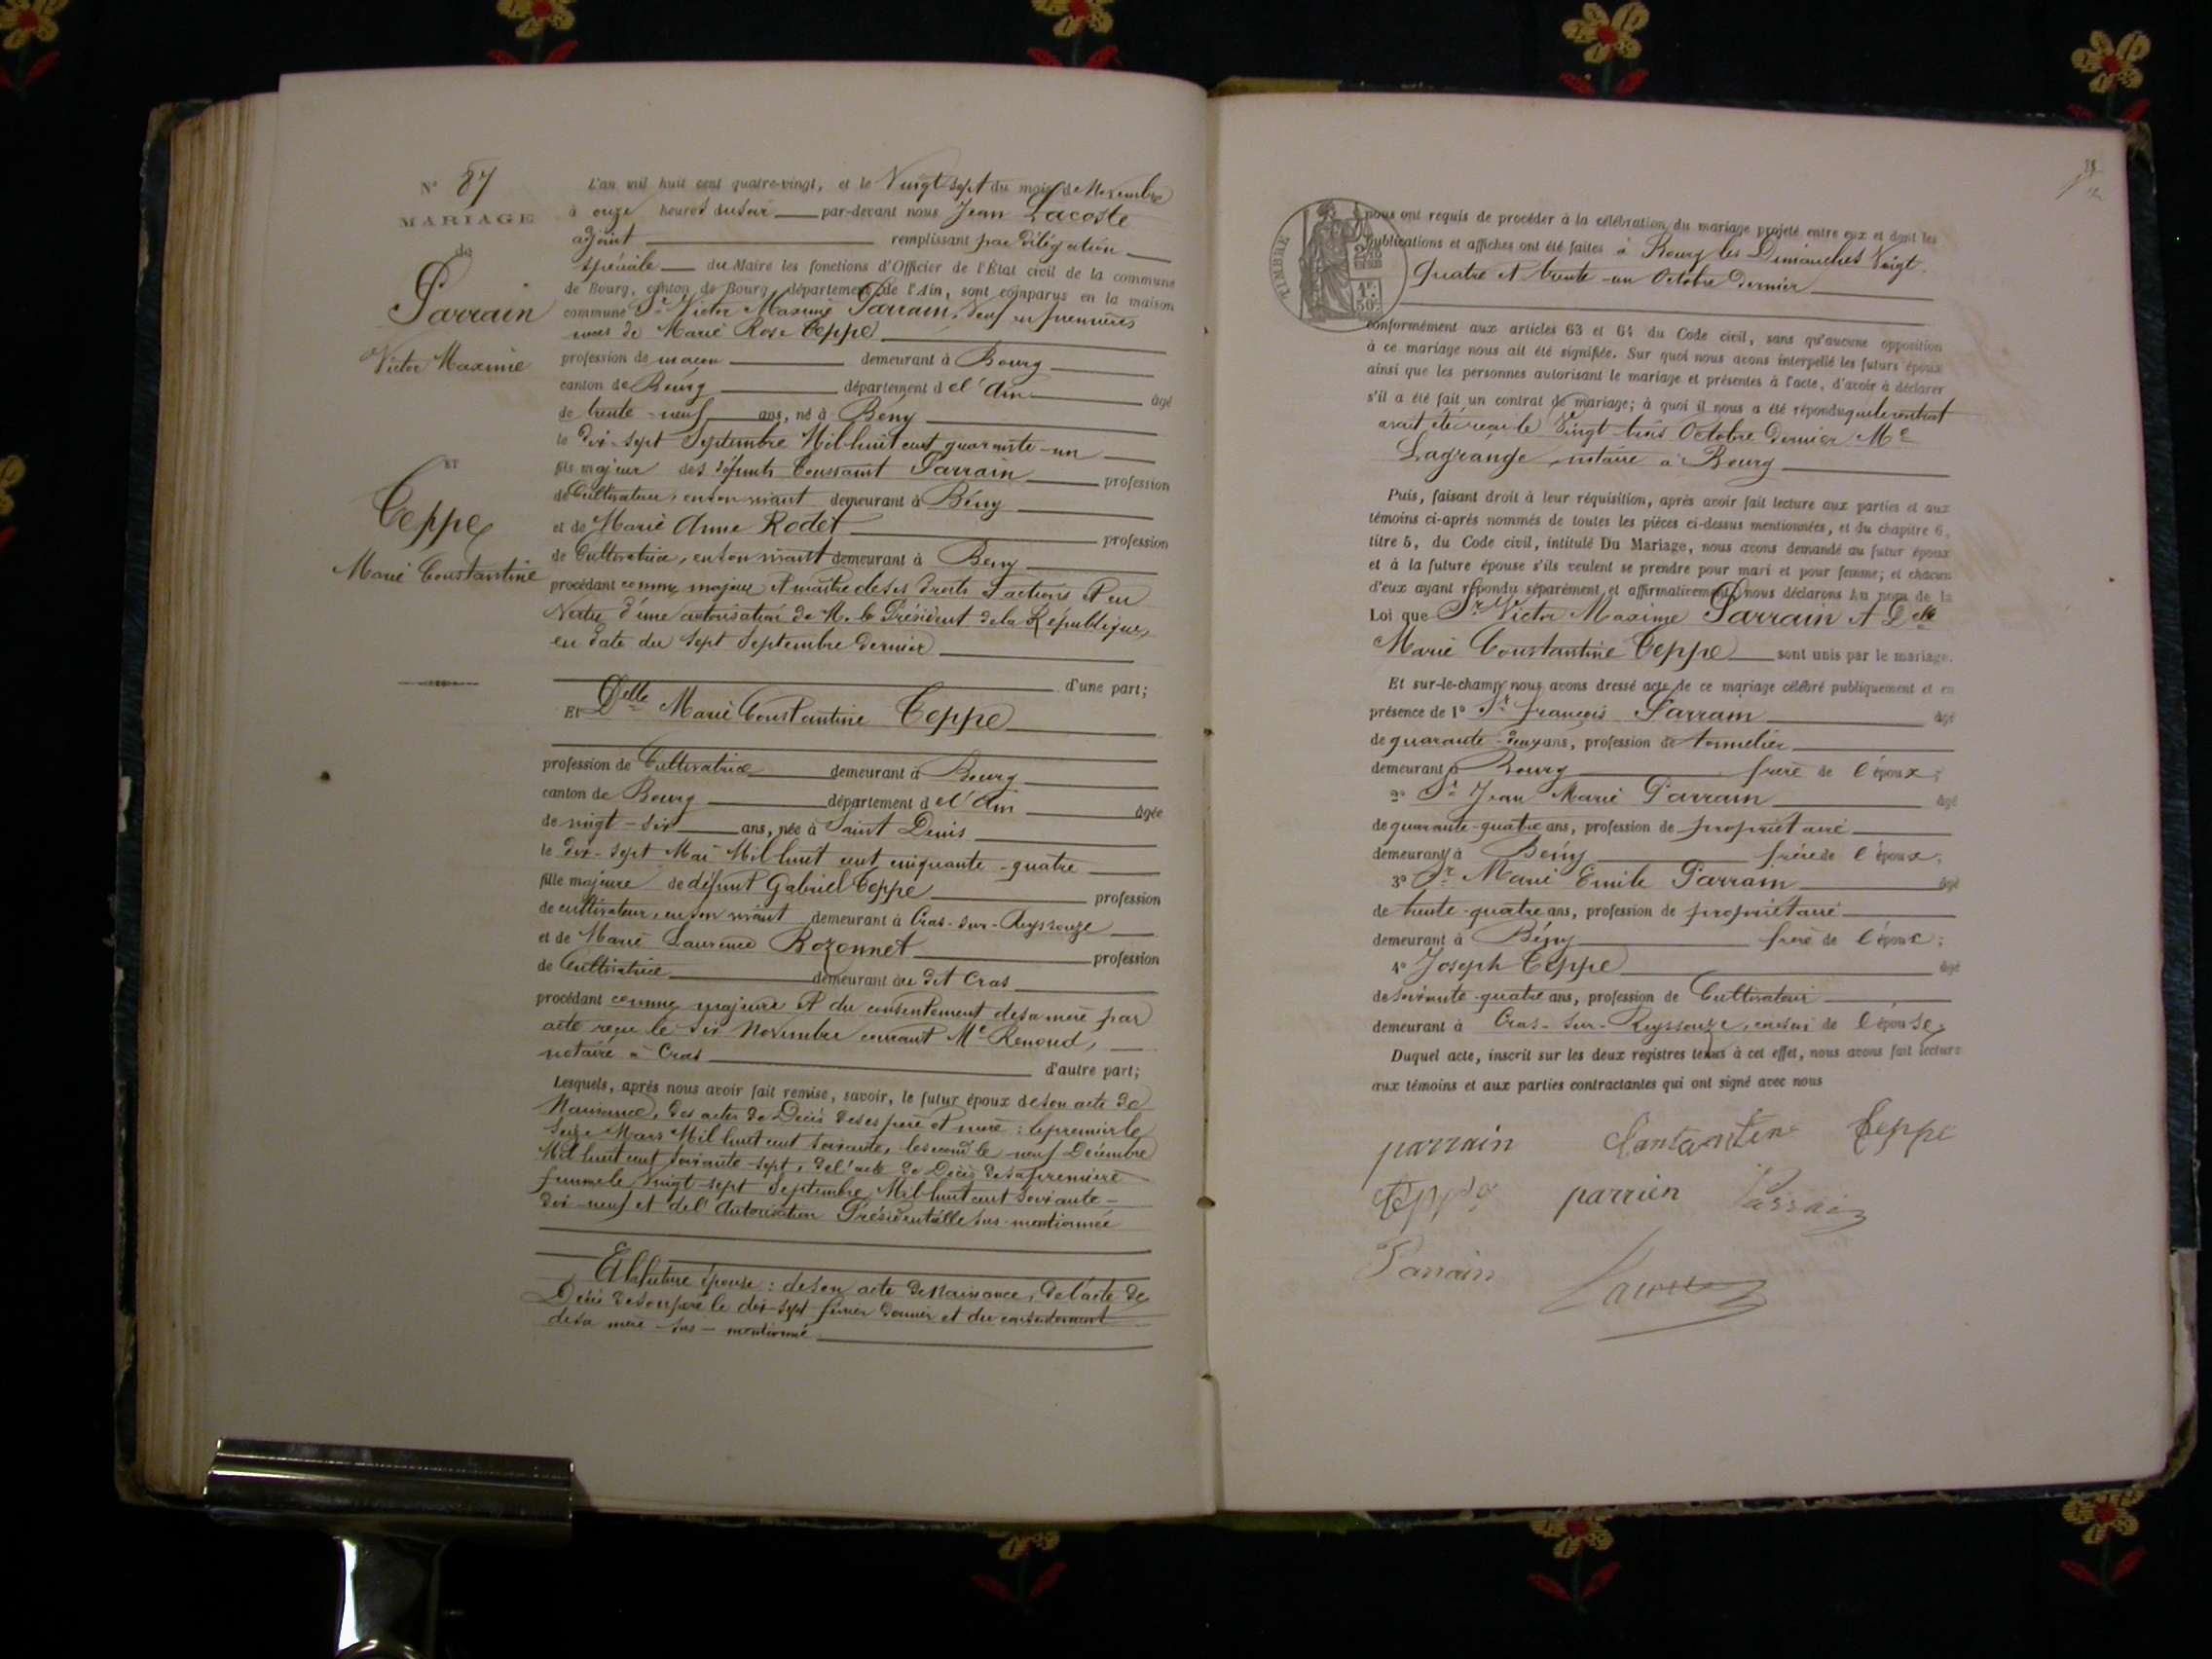 N° 87
MARIAGE
de
Parrain
Victor Maxime
ET
Teppe
Marie Constantine
L'an mil huit cent quatre-vingt, et le Vingt sept du mois de Novembre
à onze heures du soir par-devant nous Jean Lacoste
adjoint remplissant par délégation
spéciale du Maire les fonctions d'Officier de l'État civil de la commune
de Bourg, canton de Bourg, département de l'Ain, sont comparus en la maison
commune Sr Victor Maxime Parrain, Veuf en premières
noces de Marie Rose Teppe
profession de maçon demeurant à Bourg
canton de Bourg département de l'Ain âgé
de trente-neuf ans, né à Beny
le dix-sept Septembre Mil huit cent quarante-un
fils majeur des défunts Toussaint Parrain profession
de Cultivateur, en son vivant demeurant à Bény
et de Marie Anne Rodet profession
de Cultivatrice, en son vivant demeurant à Beny
procédant comme majeur et maître de ses droits et actions et en
Vertu d'une autorisation de M. le Président de la République,
en date du sept Septembre dernier
d'une part;
Et Delle Marie Constantine Teppe
profession de Cultivatrice demeurant à Bourg
canton de Bourg département de l'Ain âgée
de vingt-six ans, née à Saint Denis
le dix-sept Mai Mil huit cent cinquante-quatre
fille majeure de défunt Gabriel Teppe profession
de cultivateur, en son vivant demeurant à Cras-sur-Reyssouze
et de Marie Laurence Bozonnet profession
de Cultivatrice demeurant au dit Cras
procédant comme majeure et du consentement de sa mère par
acte reçu le six Novembre courant Me Renoud,
notaire à Cras d'autre part;
Lesquels, après nous avoir fait remise, savoir, le futur époux de son acte de
Naissance, des actes de Décès de ses père et mère : le premier le
seize Mars Mil huit cent soixante, le second le neuf Décembre
Mil huit cent soixante-sept, de l'acte de Décès de sa première
femme le vingt-sept Septembre Mil huit cent soixante-
dix-neuf et de l'Autorisation Présidentielle sus-mentionnée
Et la future épouse : de son acte de Naissance, de l'acte de
Décès de son père le dix-sept février dernier et du consentement
de sa mère sus-mentionné
TIMBRE
nous ont requis de procéder à la célébration du mariage projeté entre eux et dont les
publications et affiches ont été faites à Bourg les Dimanches Vingt-
quatre et trente-un Octobre dernier
conformément aux articles 63 et 64 du Code civil, sans qu'aucune opposition
à ce mariage nous ait été signifiée. Sur quoi nous avons interpellé les futurs époux
ainsi que les personnes autorisant le mariage et présentes à l'acte, d'avoir à déclarer
s'il a été fait un contrat de mariage; à quoi il nous a été répondu que le contrat
avait été reçu le Vingt-trois Octobre dernier Me
Lagrange notaire à Bourg
Puis, faisant droit à leur réquisition, après avoir fait lecture aux parties et aux
témoins ci-après nommés de toutes les pièces ci-dessus mentionnées, et du chapitre 6,
titre 5, du Code civil, intitulé Du Mariage, nous avons demandé au futur époux
et à la future épouse s'ils veulent se prendre pour mari et pour femme; et chacun
d'eux ayant répondu séparément et affirmativement, nous déclarons au nom de la
Loi que Sr Victor Maxime Parrain et Delle
Marie Constantine Teppe sont unis par le mariage.
Et sur-le-champ nous avons dressé acte de ce mariage célébré publiquement et en
présence de 1° Sr françois Parrain âgé
de quarante-deux ans, profession de tonnelier
demeurant à Bourg frère de l'époux;
2° Sr Jean Marie Parrain âgé
de quarante-quatre ans, profession de propriétaire
demeurant à Bény frère de l'époux;
3° Sr Marie Emile Parrain âgé
de trente-quatre ans, profession de propriétaire
demeurant à Bény frère de l'époux;
4° Joseph Teppe âgé
de soixante-quatre ans, profession de Cultivateur
demeurant à Cras-sur-Reyssouze, cousin de l'épouse.
Duquel acte, inscrit sur les deux registres tenus à cet effet, nous avons fait lecture
aux témoins et aux parties contractantes qui ont signé avec nous
parrain Constantine Teppe
Teppe parrien Parrain
Parrain Lacoste